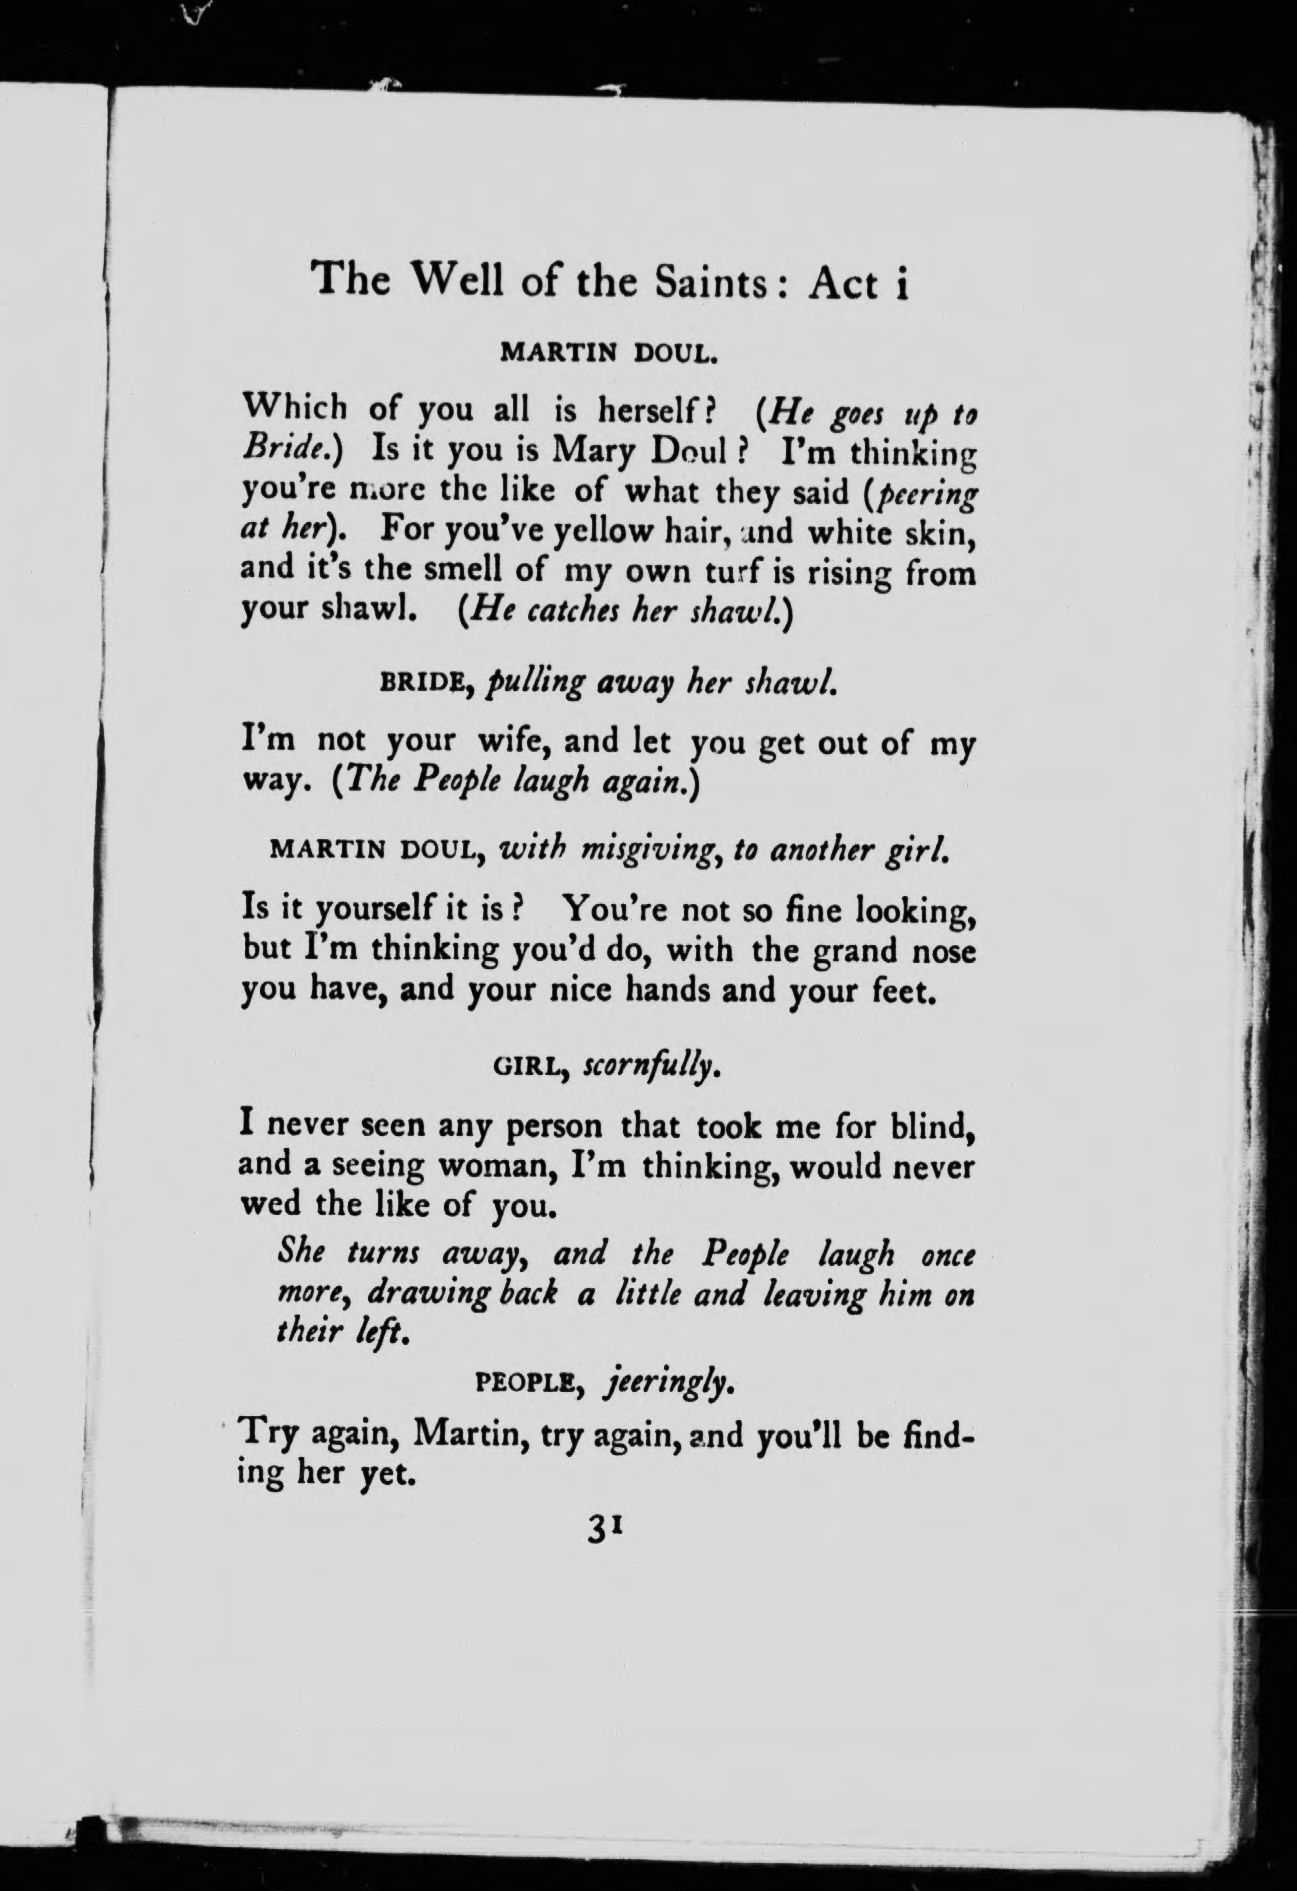 The Well of the Saints: Act i
MARTIN DOUL.
Which of you all is herself? (He goes up to
Bride.) Is it you is Mary Doul? I'm thinking
you're more the like of what they said (peering
at her). For you've yellow hair, and white skin,
and it's the smell of my own turf is rising from
your shawl. (He catches her shawl.)
BRIDE, pulling away her shawl.
I'm not your wife, and let you get out of my
way. (The People laugh again.)
MARTIN DOUL, with misgiving, to another girl.
Is it yourself it is? You're not so fine looking,
but I'm thinking you'd do, with the grand nose
you have, and your nice hands and your feet.
GIRL, scornfully.
I never seen any person that took me for blind,
and a seeing woman, I'm thinking, would never
wed the like of you.
She turns away, and the People laugh once
more, drawing back a little and leaving him on
their left.
PEOPLE, jeeringly.
Try again, Martin, try again, and you'll be find-
ing her yet.
31